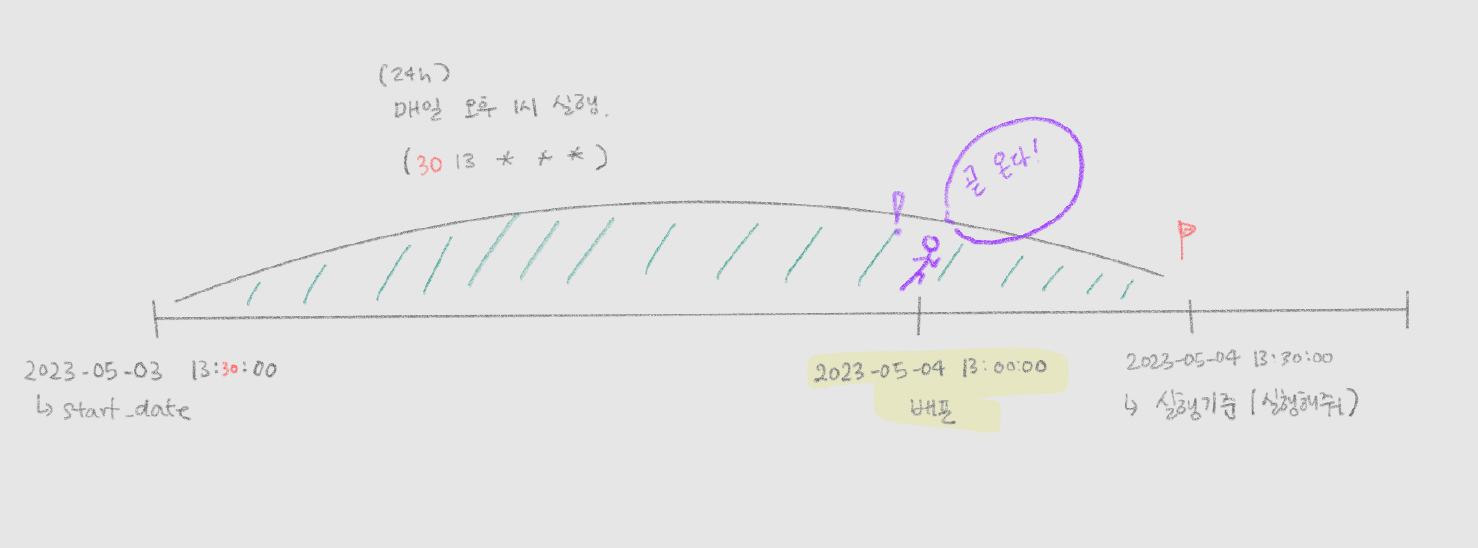 (24h)
매일 오후 1시 실행.
(30 13 * * *)
곧 온다!
2023-05-03 13:30:00
↳ start_date
2023-05-04 13:00:00
배포
2023-05-04 13:30:00
↳ 실행기준 (실행해줘)